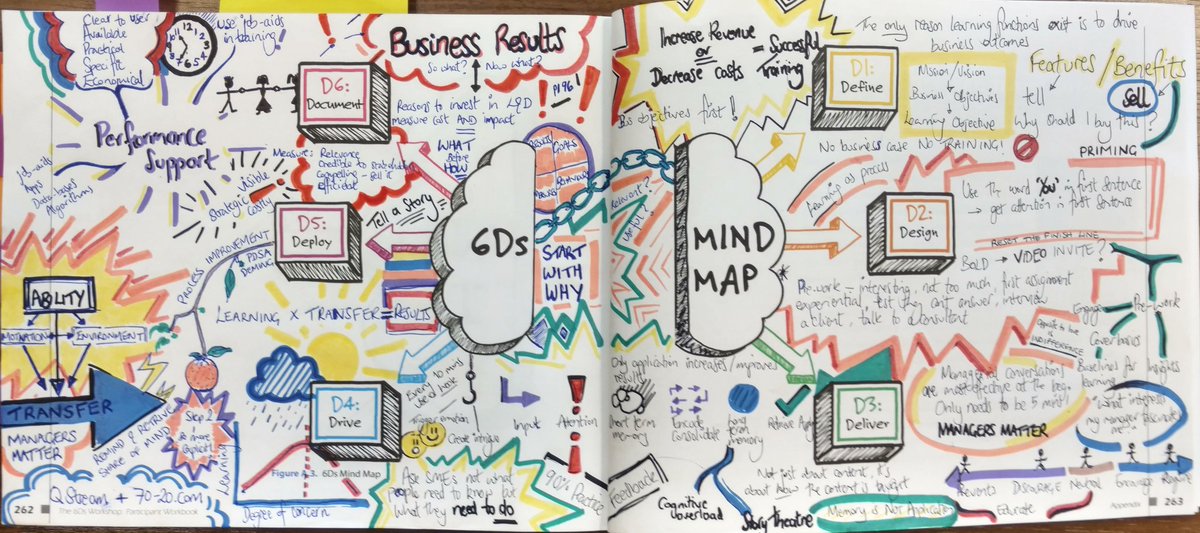 Clear to user
Available
Practical
Specific
Economical
use job-aids
in training!
Business Results
So what? Now what?
D6:
Document
Reasons to invest in L&D
measure cost AND impact
P196!
Performance
Support
job-aids
Apps
Data-bases
Algorithms
Measure: Relevance
Credible to stakeholders
Compelling - sell it
Efficient
WHAT
Before
HOW
RESULTS
GOALS
Strategic
visible
costly
D5:
Deploy
Tell a Story
6Ds
START
WITH
WHY
PROCESS IMPROVEMENT
PDSA
DEMING
LEARNING X TRANSFER = RESULTS
ABILITY
MOTIVATION
ENVIRONMENT
TRANSFER
MANAGERS
MATTER
REMIND & RETRIEVE
SHARE OF MIND
D4:
Drive
Every 10 mins
use a hook
Trigger emotion
Create intrigue
Input
Attention
Learning
Figure A.3. 6Ds Mind Map
Ask SMEs not what
people need to know but
what they need to do
Q Stream + 70-20.com
Degree of concern
262
The 6Ds Workshop: Participant Workbook
Increase Revenue
or
Decrease costs
= Successful
Training
The only reason learning functions exist is to drive
business outcomes
D1:
Define
Mission/Vision
Business Objectives
Learning Objective
Features / Benefits
tell
Sell
Why should I buy this?
PRIMING
Bus objectives first!
No business case NO TRAINING!
Relevant?
Useful?
Learning as process
D2:
Design
Use the word 'You' in first sentence
→ get attention in first sentence
RESET THE FINISH LINE
BOLD → VIDEO INVITE?
MIND
MAP
Pre-work - interesting, not too much, first assignment
experiential, test they can't answer, interview
a client, talk to consultant
Engage
Pre-work
Cover basics
Baselines for
learning
Insights
Opposite to love is
INDIFFERENCE
Only application increases/improves
results
Short term
memory
Encode
Consolidate
long
term
memory
Retrieve
D3:
Deliver
Managerial conversations
are most effective at the beg.
Only needs to be 5 mins!
MANAGERS MATTER
"What interests
my manager fascinates
me"
Feedback
Cognitive
Overload
Not just about content, it's
about how the content is taught
Story theatre
Memory is Not Application
Prevents
Discourage
Neutral
Encourage
Require
Educate
Appendix
263